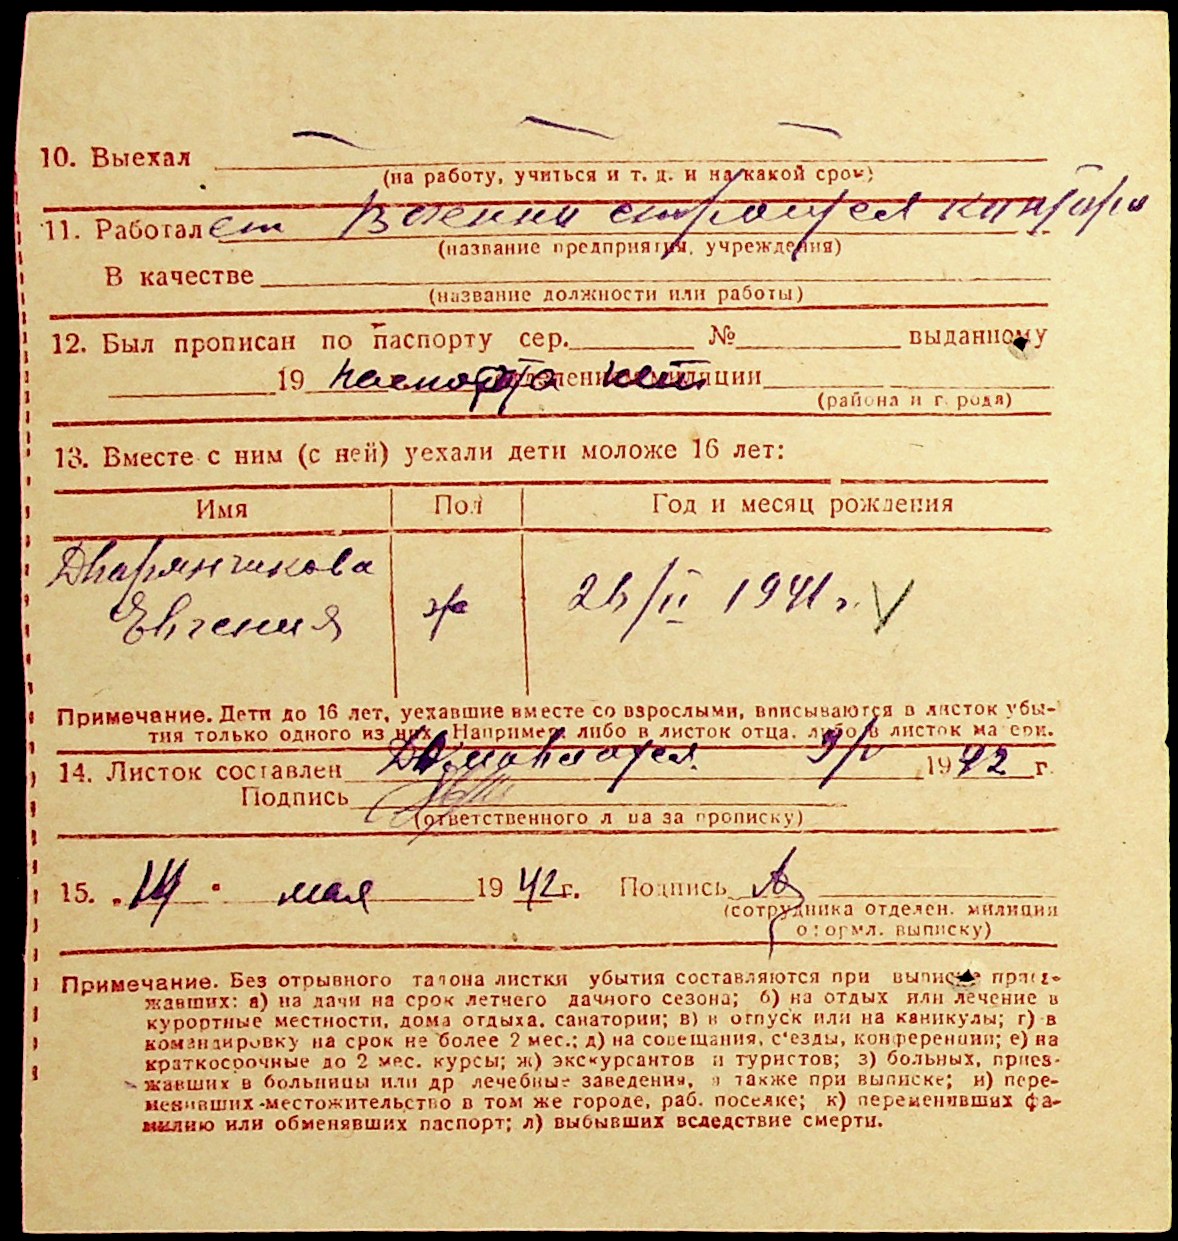 10. Выехал
(на работу, учиться и т. д. и на какой срок)
11. Работал
(название предприятия, учреждения)
В качестве
(название должности или работы)
12. Был прописан по паспорту сер. № выданному
19 паспорта нет отделением милиции
(района и города)
13. Вместе с ним (с ней) уехали дети моложе 16 лет:
Имя Пол Год и месяц рождения
Дварянчикова
Евгения ж 26/II 1941 г.
Примечание. Дети до 16 лет, уехавшие вместе со взрослыми, вписываются в листок убы-
тия только одного из них. Например, либо в листок отца, либо в листок матери.
14. Листок составлен 9/V 1942 г.
Подпись
(ответственного лица за прописку)
15. „14" мая 1942 г. Подпись
(сотрудника отделен. милиции
оформл. выписку)
Примечание. Без отрывного талона листки убытия составляются при выписке приез-
жавших: а) на дачи на срок летнего дачного сезона; б) на отдых или лечение в
курортные местности, дома отдыха, санатории; в) в отпуск или на каникулы; г) в
командировку на срок не более 2 мес.; д) на совещания, с'езды, конференции; е) на
краткосрочные до 2 мес. курсы; ж) экскурсантов и туристов; з) больных, приез-
жавших в больницы или др лечебные заведения, а также при выписке; и) пере-
менивших местожительство в том же городе, раб. поселке; к) переменивших фа-
милию или обменявших паспорт; л) выбывших вследствие смерти.